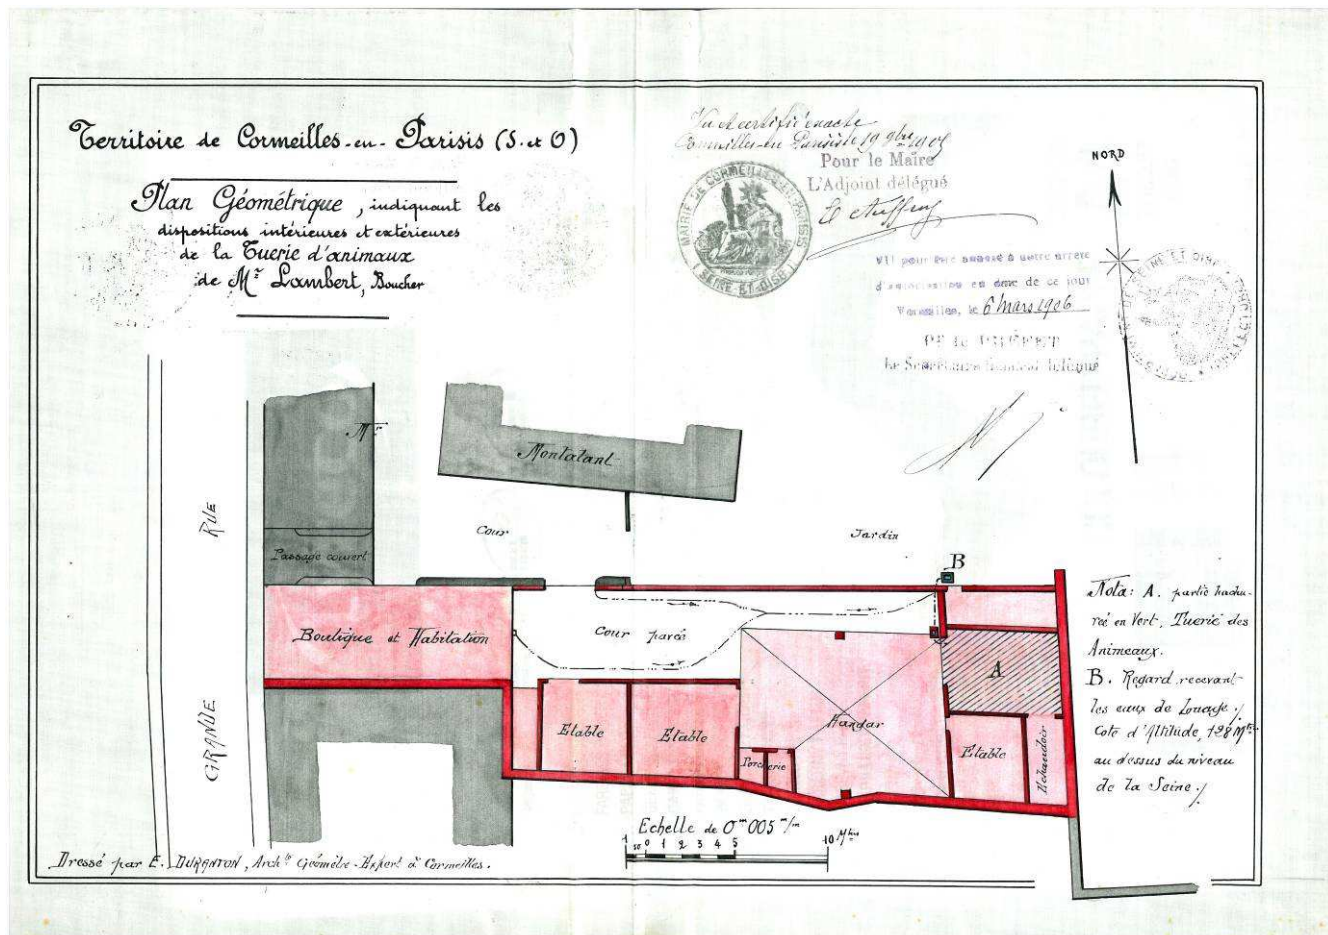 Territoire de Cormeilles-en-Parisis (S. et O)
Plan Géométrique, indiquant les
dispositions intérieures et extérieures
de la Tuerie d'animaux
de Mr Lambert, Boucher
Vu et certifié exacte
Cormeilles-en-Parisis le 19 9bre 1905
Pour le Maire
L'Adjoint délégué
MAIRIE DE CORMEILLES-EN-PARISIS
(SEINE-ET-OISE)
VU pour être annexé à notre arrêté
d'autorisation en date de ce jour
Versailles, le 6 Mars 1906
LE PRÉFET
Le Secrétaire Général délégué
NORD
SEINE ET OISE
Mr
Montatant
RUE
GRANDE
Passage couvert
Cour
Jardin
B
Boutique et Habitation
Cour pavée
A
Etable
Etable
Hangar
Porcherie
Etable
Echaudoir
Nota: A. partie hachu-
rée en Vert, Tuerie des
Animeaux.
B. Regard recevant
les eaux de Lavage./
Cote d'Altitude, 128 Mtres
au dessus du niveau
de la Seine./
Echelle de 0m005 m/m
1 50 0 1 2 3 4 5 10 Mtres
Dressé par E. DURANTON, Archte Géomètre-Expert à Cormeilles.